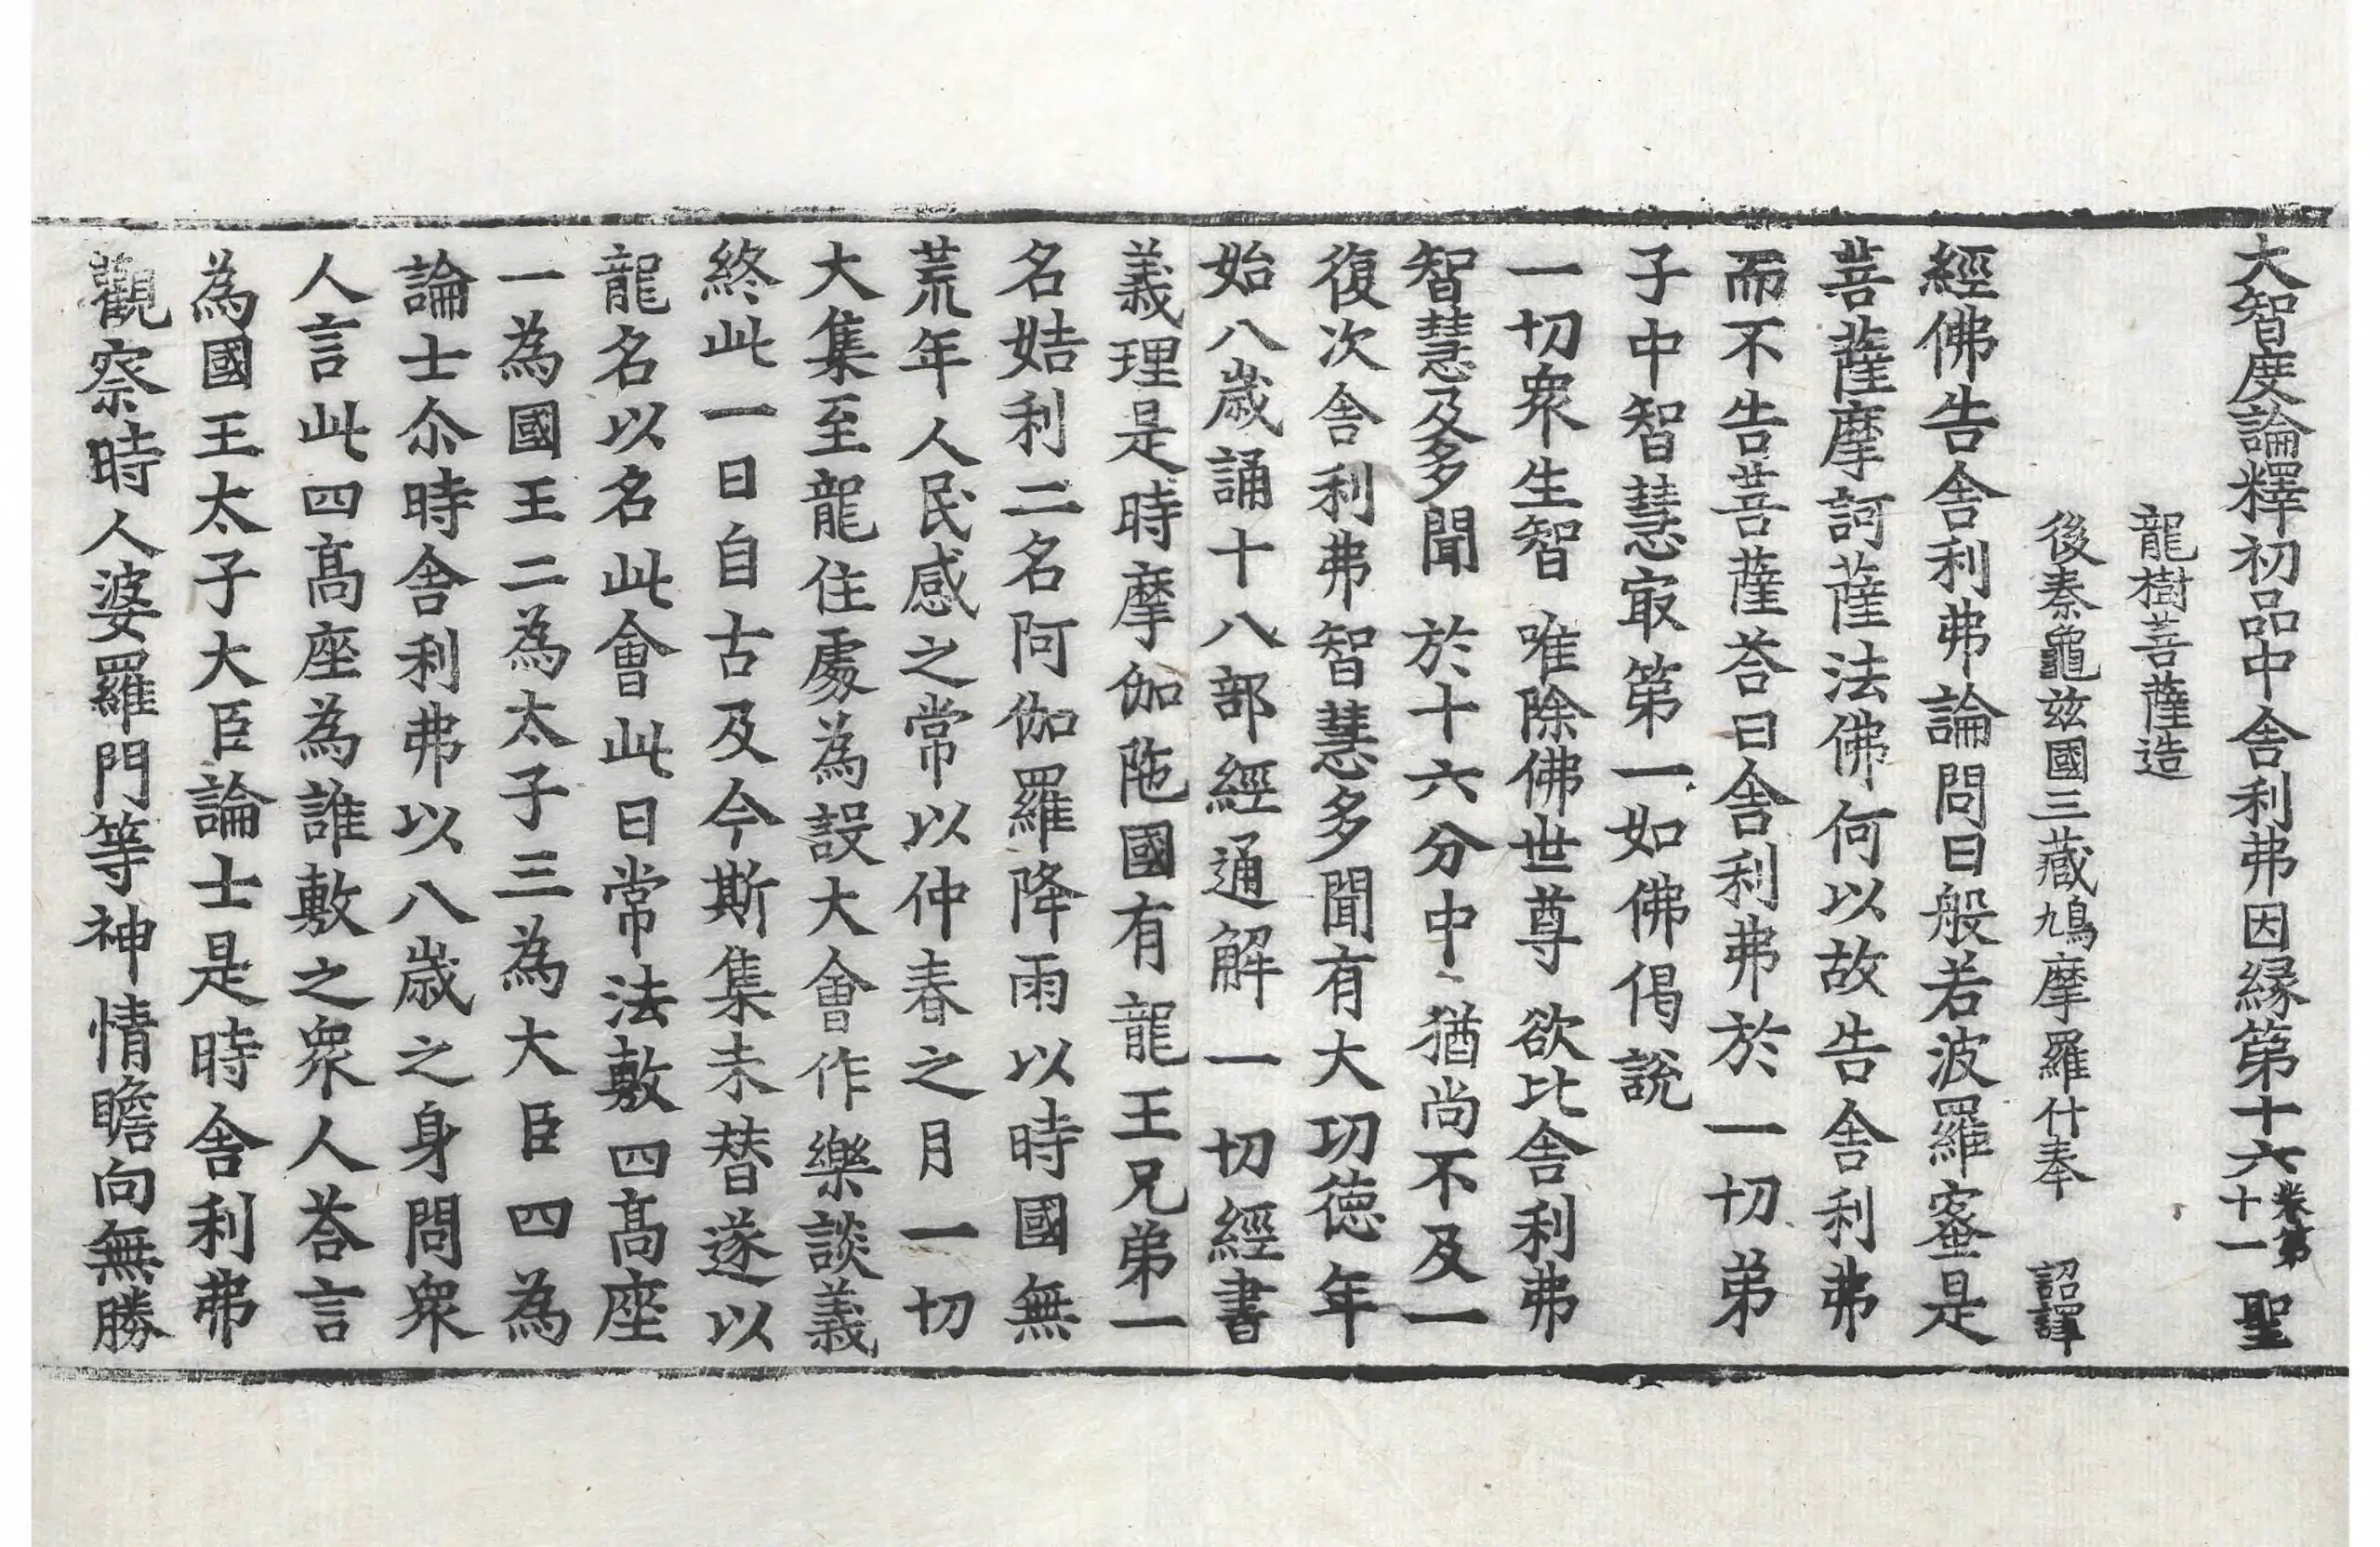 大智度論釋初品中舍利弗因緣第十六卷第十一 聖
龍樹菩薩造
後秦龜茲國三藏鳩摩羅什奉 詔譯
經佛告舍利弗論問曰般若波羅蜜是
菩薩摩訶薩法佛何以故告舍利弗
而不告菩薩荅曰舍利弗於一切弟
子中智慧冣第一如佛偈說
一切衆生智 唯除佛世尊 欲比舍利弗
智慧及多聞 於十六分中 猶尚不及一
復次舍利弗智慧多聞有大功德年
始八歲誦十八部經通解一切經書
義理是時摩伽陁國有龍王兄弟一
名姞利二名阿伽羅降雨以時國無
荒年人民感之常以仲春之月一切
大集至龍住處為設大會作樂談義
終此一日自古及今斯集未替遂以
龍名以名此會此日常法敷四髙座
一為國王二為太子三為大臣四為
論士尒時舍利弗以八歲之身問衆
人言此四髙座為誰敷之衆人荅言
為國王太子大臣論士是時舍利弗
觀察時人婆羅門等神情瞻向無勝